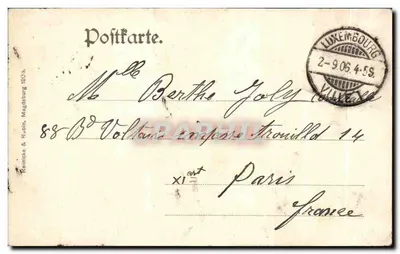 Postkarte.
LUXEMBOURG
2-9.06.4-5S.
VILLE
Mlle Berthe Joly
88 Bd Voltaire impasse Trouillot 14
XI art Paris
France
Reinicke & Rubin, Magdeburg